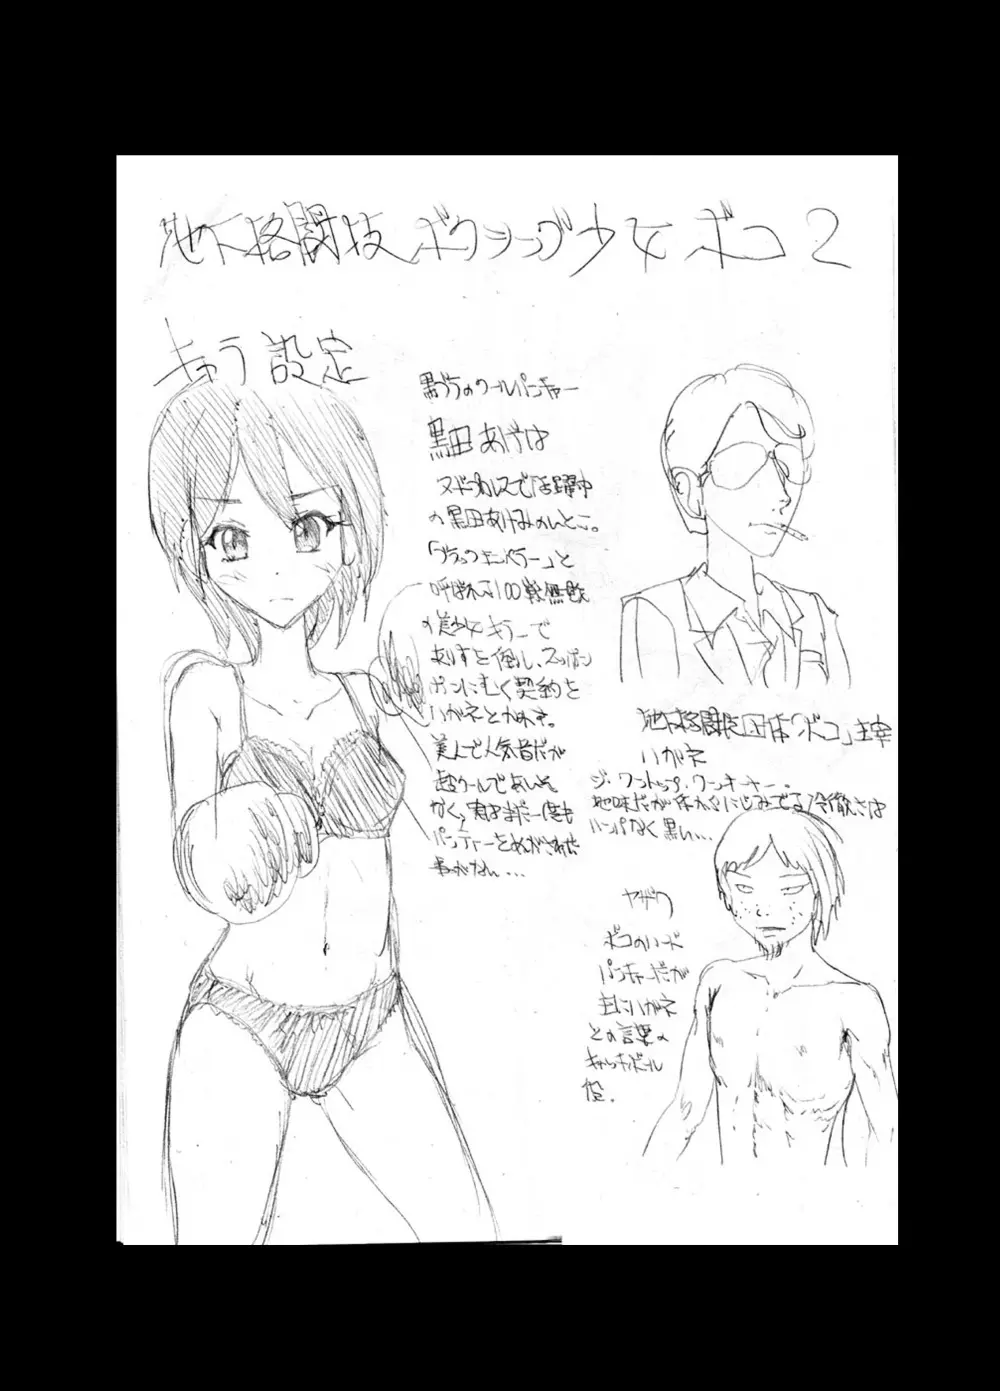 地下格闘技ボクシング少女ボコ2
キャラ設定
黒づくめのクールパンチャー
黒田あげは
で活躍中
の黒田あけみのいとこ。
「ブラックエンペラー」と
呼ばれる100戦無敗
の美少女キラーで
ありすを倒し、スッポン
ポンにむく契約を
ハガネとかわす。
美人で人気者だが
超クールであいそ
なく、実はまだ一度も
パンティーをぬがされた
事がない…
地下格闘技団体「ボコ」主宰
ハガネ
ジ・ワントップ・ワンオーナー。
地味だが体からにじみでる冷徹さは
ハンパなく黒い…
ヤザワ
ボコのハード
パンチャーだが
主にハガネ
との言葉の
キャッチボール
役。